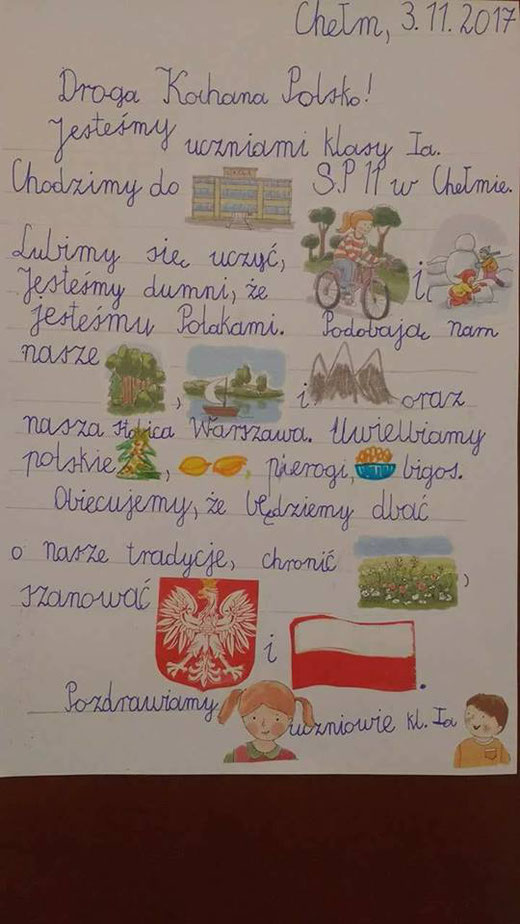 Chełm, 3.11.2017
Droga Kochana Polsko!
Jesteśmy uczniami klasy Ia.
Chodzimy do S.P 11 w Chełmie.
Lubimy się uczyć, i
Jesteśmy dumni, że
jesteśmy Polakami. Podobają nam
nasze , i oraz
nasza stolica Warszawa. Uwielbiamy
polskie , , pierogi, bigos.
Obiecujemy, że będziemy dbać
o nasze tradycje, chronić ,
szanować i .
Pozdrawiamy
uczniowie kl. Ia